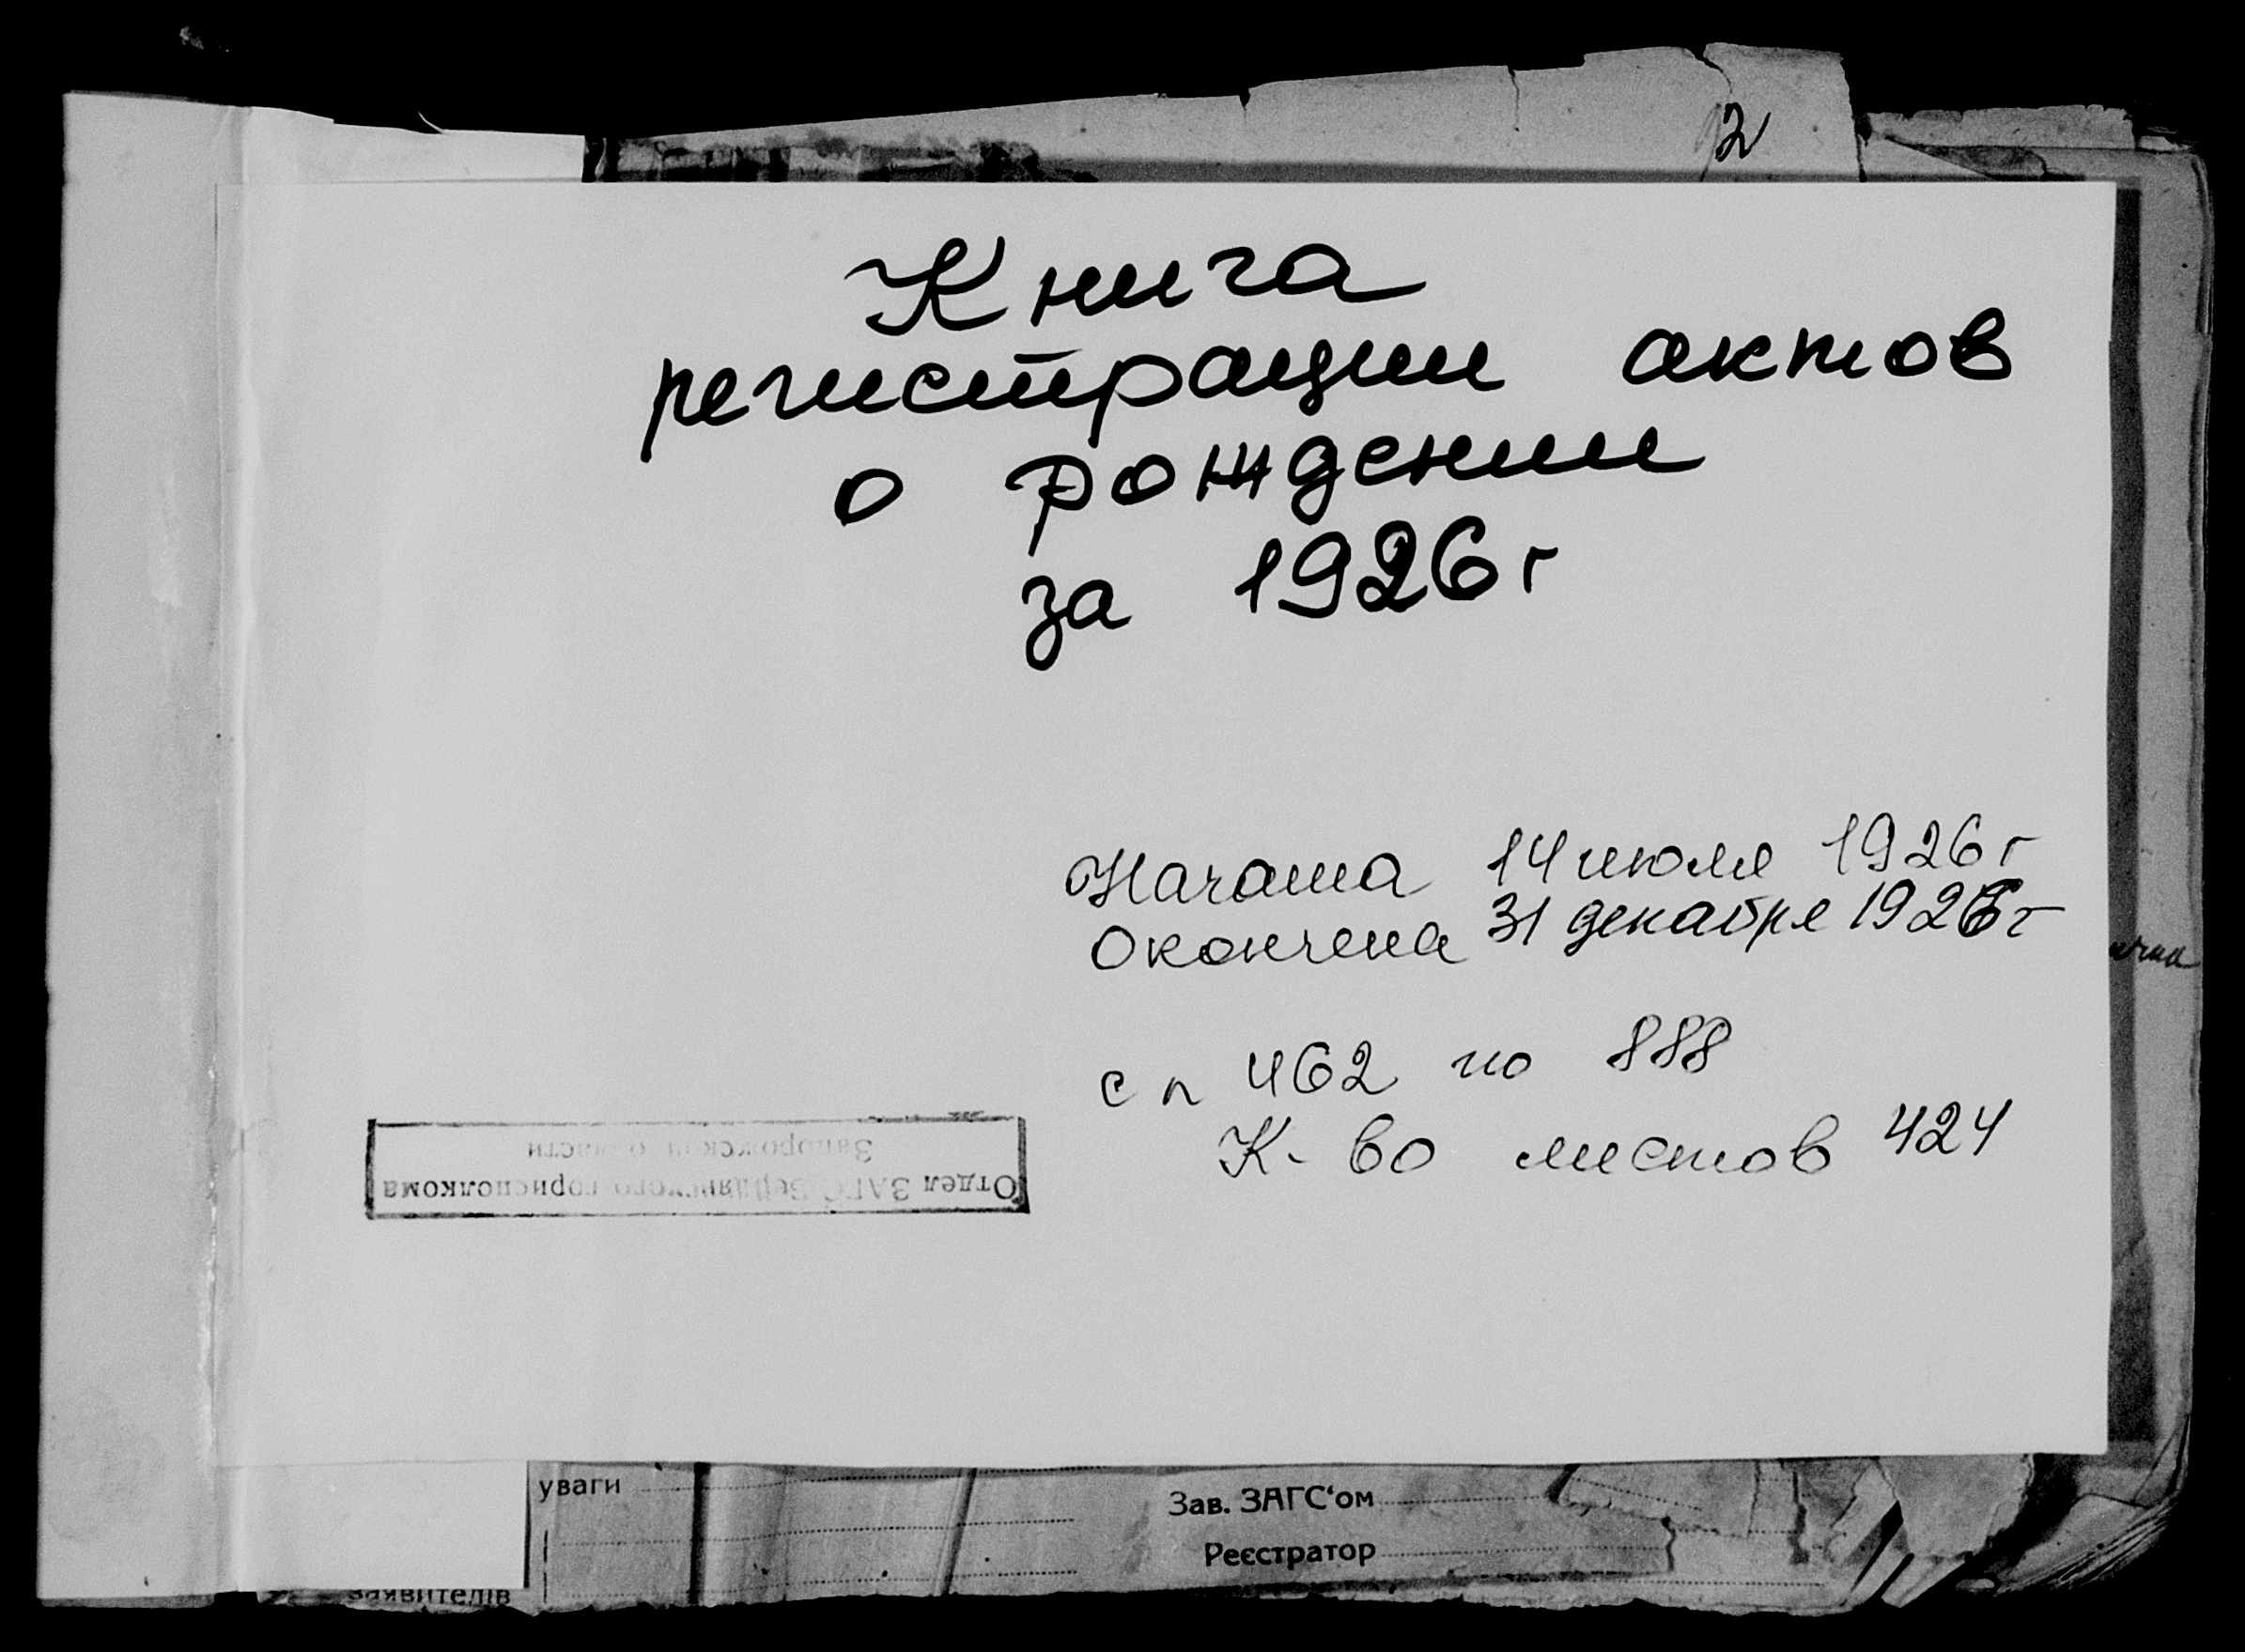 2
Книга
регистрации актов
о рождении
за 1926 г
Начата 14 июля 1926 г
Окончена 31 декабря 1926 г
с n 462 по 888
К-во листов 424
Отдел ЗАГС Бердянского горисполкома
Запорожской области
уваги
Зав. ЗАГС‘ом
Реєстратор
заявителів